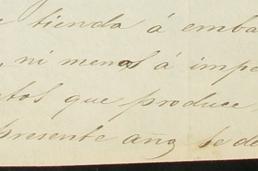 tienda á emba
, ni menos á impe
tos que produce
presente año, se de